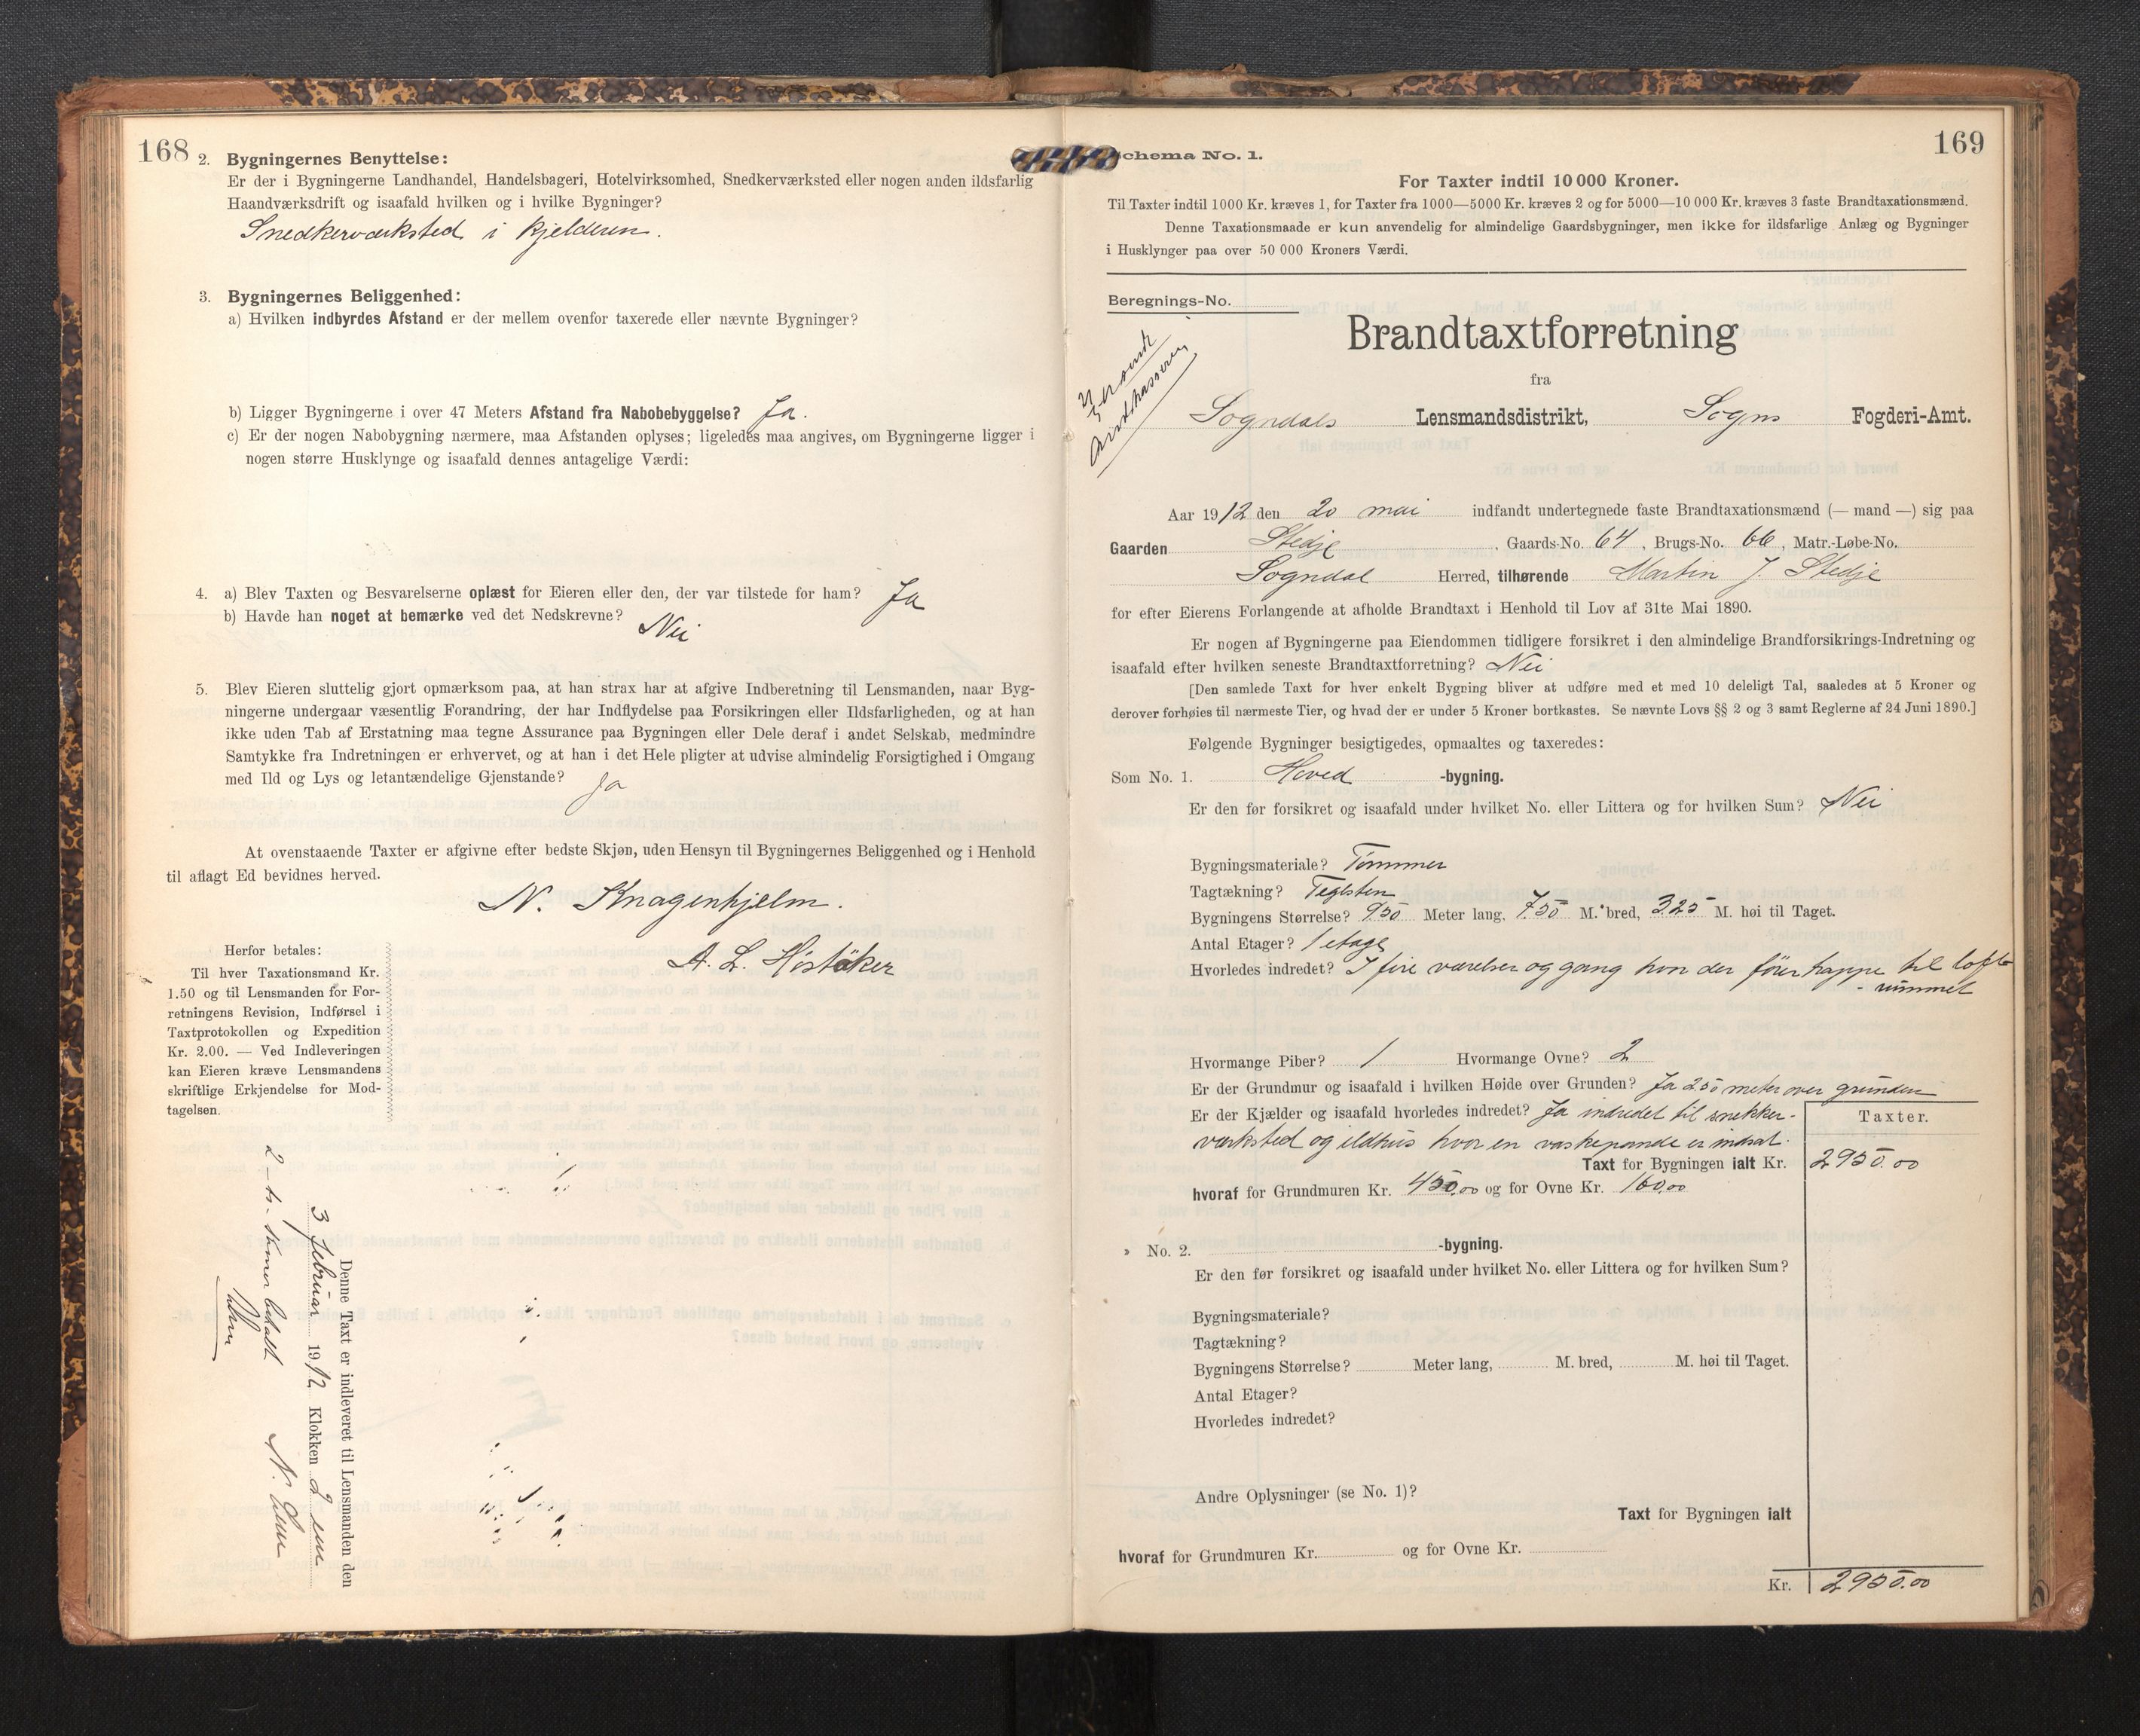 168
2. Bygningernes Benyttelse:
Er der i Bygningerne Landhandel, Handelsbageri, Hotelvirksomhed, Snedkerværksted eller nogen anden ildsfarlig
Haandværksdrift og isaafald hvilken og i hvilke Bygninger?
Snedkerværksted i Kjelderen.
3. Bygningernes Beliggenhed:
a) Hvilken indbyrdes Afstand er der mellem ovenfor taxerede eller nævnte Bygninger?
b) Ligger Bygningerne i over 47 Meters Afstand fra Nabobebyggelse? Ja.
c) Er der nogen Nabobygning nærmere, maa Afstanden oplyses; ligeledes maa angives, om Bygningerne ligger i
nogen større Husklynge og isaafald dennes antagelige Værdi:
4. a) Blev Taxten og Besvarelserne oplæst for Eieren eller den, der var tilstede for ham? Ja
b) Havde han noget at bemærke ved det Nedskrevne? Nei
5. Blev Eieren sluttelig gjort opmærksom paa, at han strax har at afgive Indberetning til Lensmanden, naar Byg-
ningerne undergaar væsentlig Forandring, der har Indflydelse paa Forsikringen eller Ildsfarligheden, og at han
ikke uden Tab af Erstatning maa tegne Assurance paa Bygningen eller Dele deraf i andet Selskab, medmindre
Samtykke fra Indretningen er erhvervet, og at han i det Hele pligter at udvise almindelig Forsigtighed i Omgang
med Ild og Lys og letantændelige Gjenstande? Ja
At ovenstaaende Taxter er afgivne efter bedste Skjøn, uden Hensyn til Bygningernes Beliggenhed og i Henhold
til aflagt Ed bevidnes herved.
N. Knagenhjelm.
A. L. Høståker
Herfor betales:
Til hver Taxationsmand Kr.
1.50 og til Lensmanden for For-
retningens Revision, Indførsel i
Taxtprotokollen og Expedition
Kr. 2.00. — Ved Indleveringen
kan Eieren kræve Lensmandens
skriftlige Erkjendelse for Mod-
tagelsen.
Denne Taxt er indleveret til Lensmanden den
3 februar 1912 Klokken 2 em
2 - to - kroner betalt
169
Schema No. 1.
For Taxter indtil 10 000 Kroner.
Til Taxter indtil 1000 Kr. kræves 1, for Taxter fra 1000—5000 Kr. kræves 2 og for 5000—10 000 Kr. kræves 3 faste Brandtaxationsmænd.
Denne Taxationsmaade er kun anvendelig for almindelige Gaardsbygninger, men ikke for ildsfarlige Anlæg og Bygninger
i Husklynger paa over 50 000 Kroners Værdi.
Beregnings-No.
Brandtaxtforretning
fra
Sogndals Lensmandsdistrikt, Sogns Fogderi-Amt.
Aar 1912 den 20 mai indfandt undertegnede faste Brandtaxationsmænd (— mand —) sig paa
Gaarden Stedje, Gaards-No. 64, Brugs-No. 66, Matr.-Løbe-No.
Sogndal Herred, tilhørende Martin J. Stedje
for efter Eierens Forlangende at afholde Brandtaxt i Henhold til Lov af 31te Mai 1890.
Er nogen af Bygningerne paa Eiendommen tidligere forsikret i den almindelige Brandforsikrings-Indretning og
isaafald efter hvilken seneste Brandtaxtforretning? Nei
[Den samlede Taxt for hver enkelt Bygning bliver at udføre med et med 10 deleligt Tal, saaledes at 5 Kroner og
derover forhøies til nærmeste Tier, og hvad der er under 5 Kroner bortkastes. Se nævnte Lovs §§ 2 og 3 samt Reglerne af 24 Juni 1890.]
Følgende Bygninger besigtigedes, opmaaltes og taxeredes:
Som No. 1. Hoved -bygning.
Er den før forsikret og isaafald under hvilket No. eller Littera og for hvilken Sum? Nei
Bygningsmateriale? Tømmer
Tagtækning? Teglsten
Bygningens Størrelse? 9.50 Meter lang, 7.50 M. bred, 3.25 M. høi til Taget.
Antal Etager? 1 etage
Hvorledes indredet? I fire værelser og gang hvor der fører trappe til lofts-
rummet
Hvormange Piber? 1 Hvormange Ovne? 2
Er der Grundmur og isaafald i hvilken Høide over Grunden? Ja 2.50 meter over grunden
Er der Kjælder og isaafald hvorledes indredet? Ja indredet til snekker-
værksted og ildhus hvor en vaskepande er indsat.
Taxter.
Taxt for Bygningen ialt Kr. 2950.00
hvoraf for Grundmuren Kr. 450.00 og for Ovne Kr. 160.00
» No. 2. -bygning.
Er den før forsikret og isaafald under hvilket No. eller Littera og for hvilken Sum?
Bygningsmateriale?
Tagtækning?
Bygningens Størrelse? Meter lang, M. bred, M. høi til Taget.
Antal Etager?
Hvorledes indredet?
Andre Oplysninger (se No. 1)?
Taxt for Bygningen ialt
hvoraf for Grundmuren Kr. og for Ovne Kr.
Kr. 2950.00